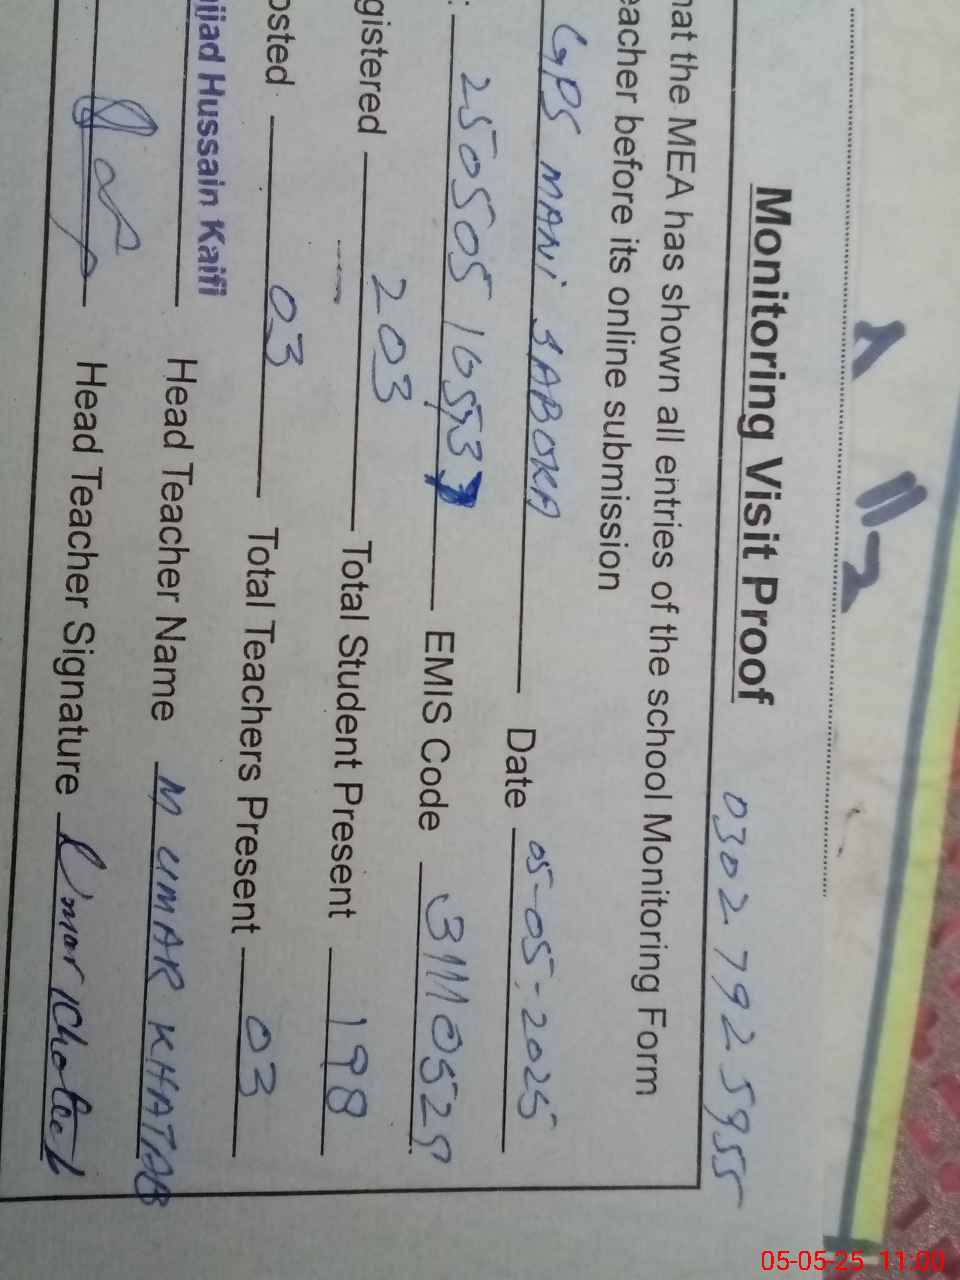 Monitoring Visit Proof 0302 7925955
hat the MEA has shown all entries of the school Monitoring Form
eacher before its online submission
GPS MANI SABOKA Date 05-05-2025
: EMIS Code 31110529
gistered 203 Total Student Present 198
osted 03 Total Teachers Present 03
Hussain Kaifi Head Teacher Name M UMAR KHATAB
Head Teacher Signature
05-05-25 11:00